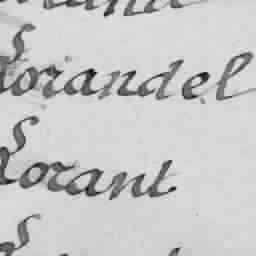 Lorandel
Lorant